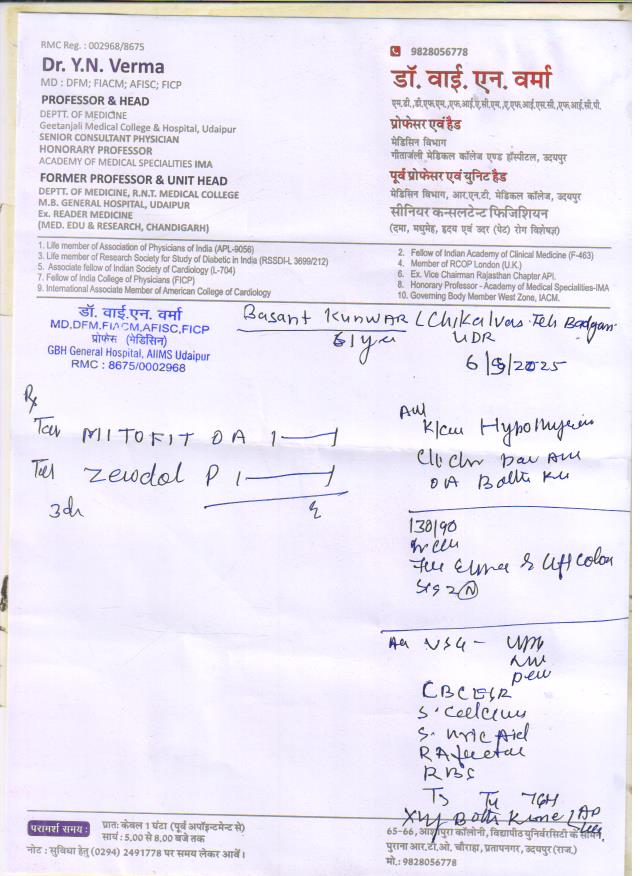 RMC Reg. : 002968/8675
Dr. Y.N. Verma
MD : DFM; FIACM; AFISC; FICP
PROFESSOR & HEAD
DEPTT. OF MEDICINE
Geetanjali Medical College & Hospital, Udaipur
SENIOR CONSULTANT PHYSICIAN
HONORARY PROFESSOR
ACADEMY OF MEDICAL SPECIALITIES IMA
FORMER PROFESSOR & UNIT HEAD
DEPTT. OF MEDICINE, R.N.T. MEDICAL COLLEGE
M.B. GENERAL HOSPITAL, UDAIPUR
Ex. READER MEDICINE
(MED. EDU & RESEARCH, CHANDIGARH)
9828056778
डॉ. वाई. एन. वर्मा
एम.डी.,डी.एफ.एम.,एफ.आई.ए.सी.एम.,ए.एफ.आई.एस.सी.,एफ.आई.सी.पी.
प्रोफेसर एवं हैड
मेडिसिन विभाग
गीतांजली मेडिकल कॉलेज एण्ड हॉस्पीटल, उदयपुर
पूर्व प्रोफेसर एवं युनिट हैड
मेडिसिन विभाग, आर.एन.टी. मेडिकल कॉलेज, उदयपुर
सीनियर कन्सलटेन्ट फिजिशियन
(दमा, मधुमेह, हृदय एवं उदर (पेट) रोग विशेषज्ञ)
1. Life member of Association of Physicians of India (APL-9056)
3. Life member of Research Society for Study of Diabetic in India (RSSDI-L 3699/212)
5. Associate fellow of Indian Society of Cardiology (L-704)
7. Fellow of India College of Physicians (FICP)
9. International Associate Member of American College of Cardiology
2. Fellow of Indian Academy of Clinical Medicine (F-463)
4. Member of RCOP London (U.K.)
6. Ex. Vice Chairman Rajasthan Chapter API.
8. Honorary Professor - Academy of Medical Specialities-IMA
10. Governing Body Member West Zone, IACM.
डॉ. वाई. एन. वर्मा
MD,DFM,FIACM,AFISC,FICP
प्रोफेस (मेडिसिन)
GBH General Hospital, AIIMS Udaipur
RMC : 8675/0002968
Basant Kunwar
UDR
Rx
MITOFIT OA 1
Zerodol P 1
OA Both
130/90
CBC ESR
S. Calcium
S. Uric Acid
RA factor
RBS
T3 T4 TSH
Both Knee AP
परामर्श समय :
प्रातः केवल 1 घंटा (पूर्व अपॉइन्टमेन्ट से)
सायं : 5.00 से 8.00 बजे तक
नोट : सुविधा हेतु (0294) 2491778 पर समय लेकर आवें।
65-66, आशापुरा कॉलोनी, विद्यापीठ युनिवरसिटी के सामने,
पुराना आर.टी.ओ. चौराहा, प्रतापनगर, उदयपुर (राज.)
मो.: 9828056778